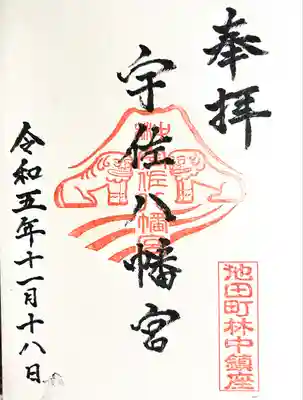 奉拝
宇佐八幡宮
池田町林中鎮座
令和五年十一月十八日